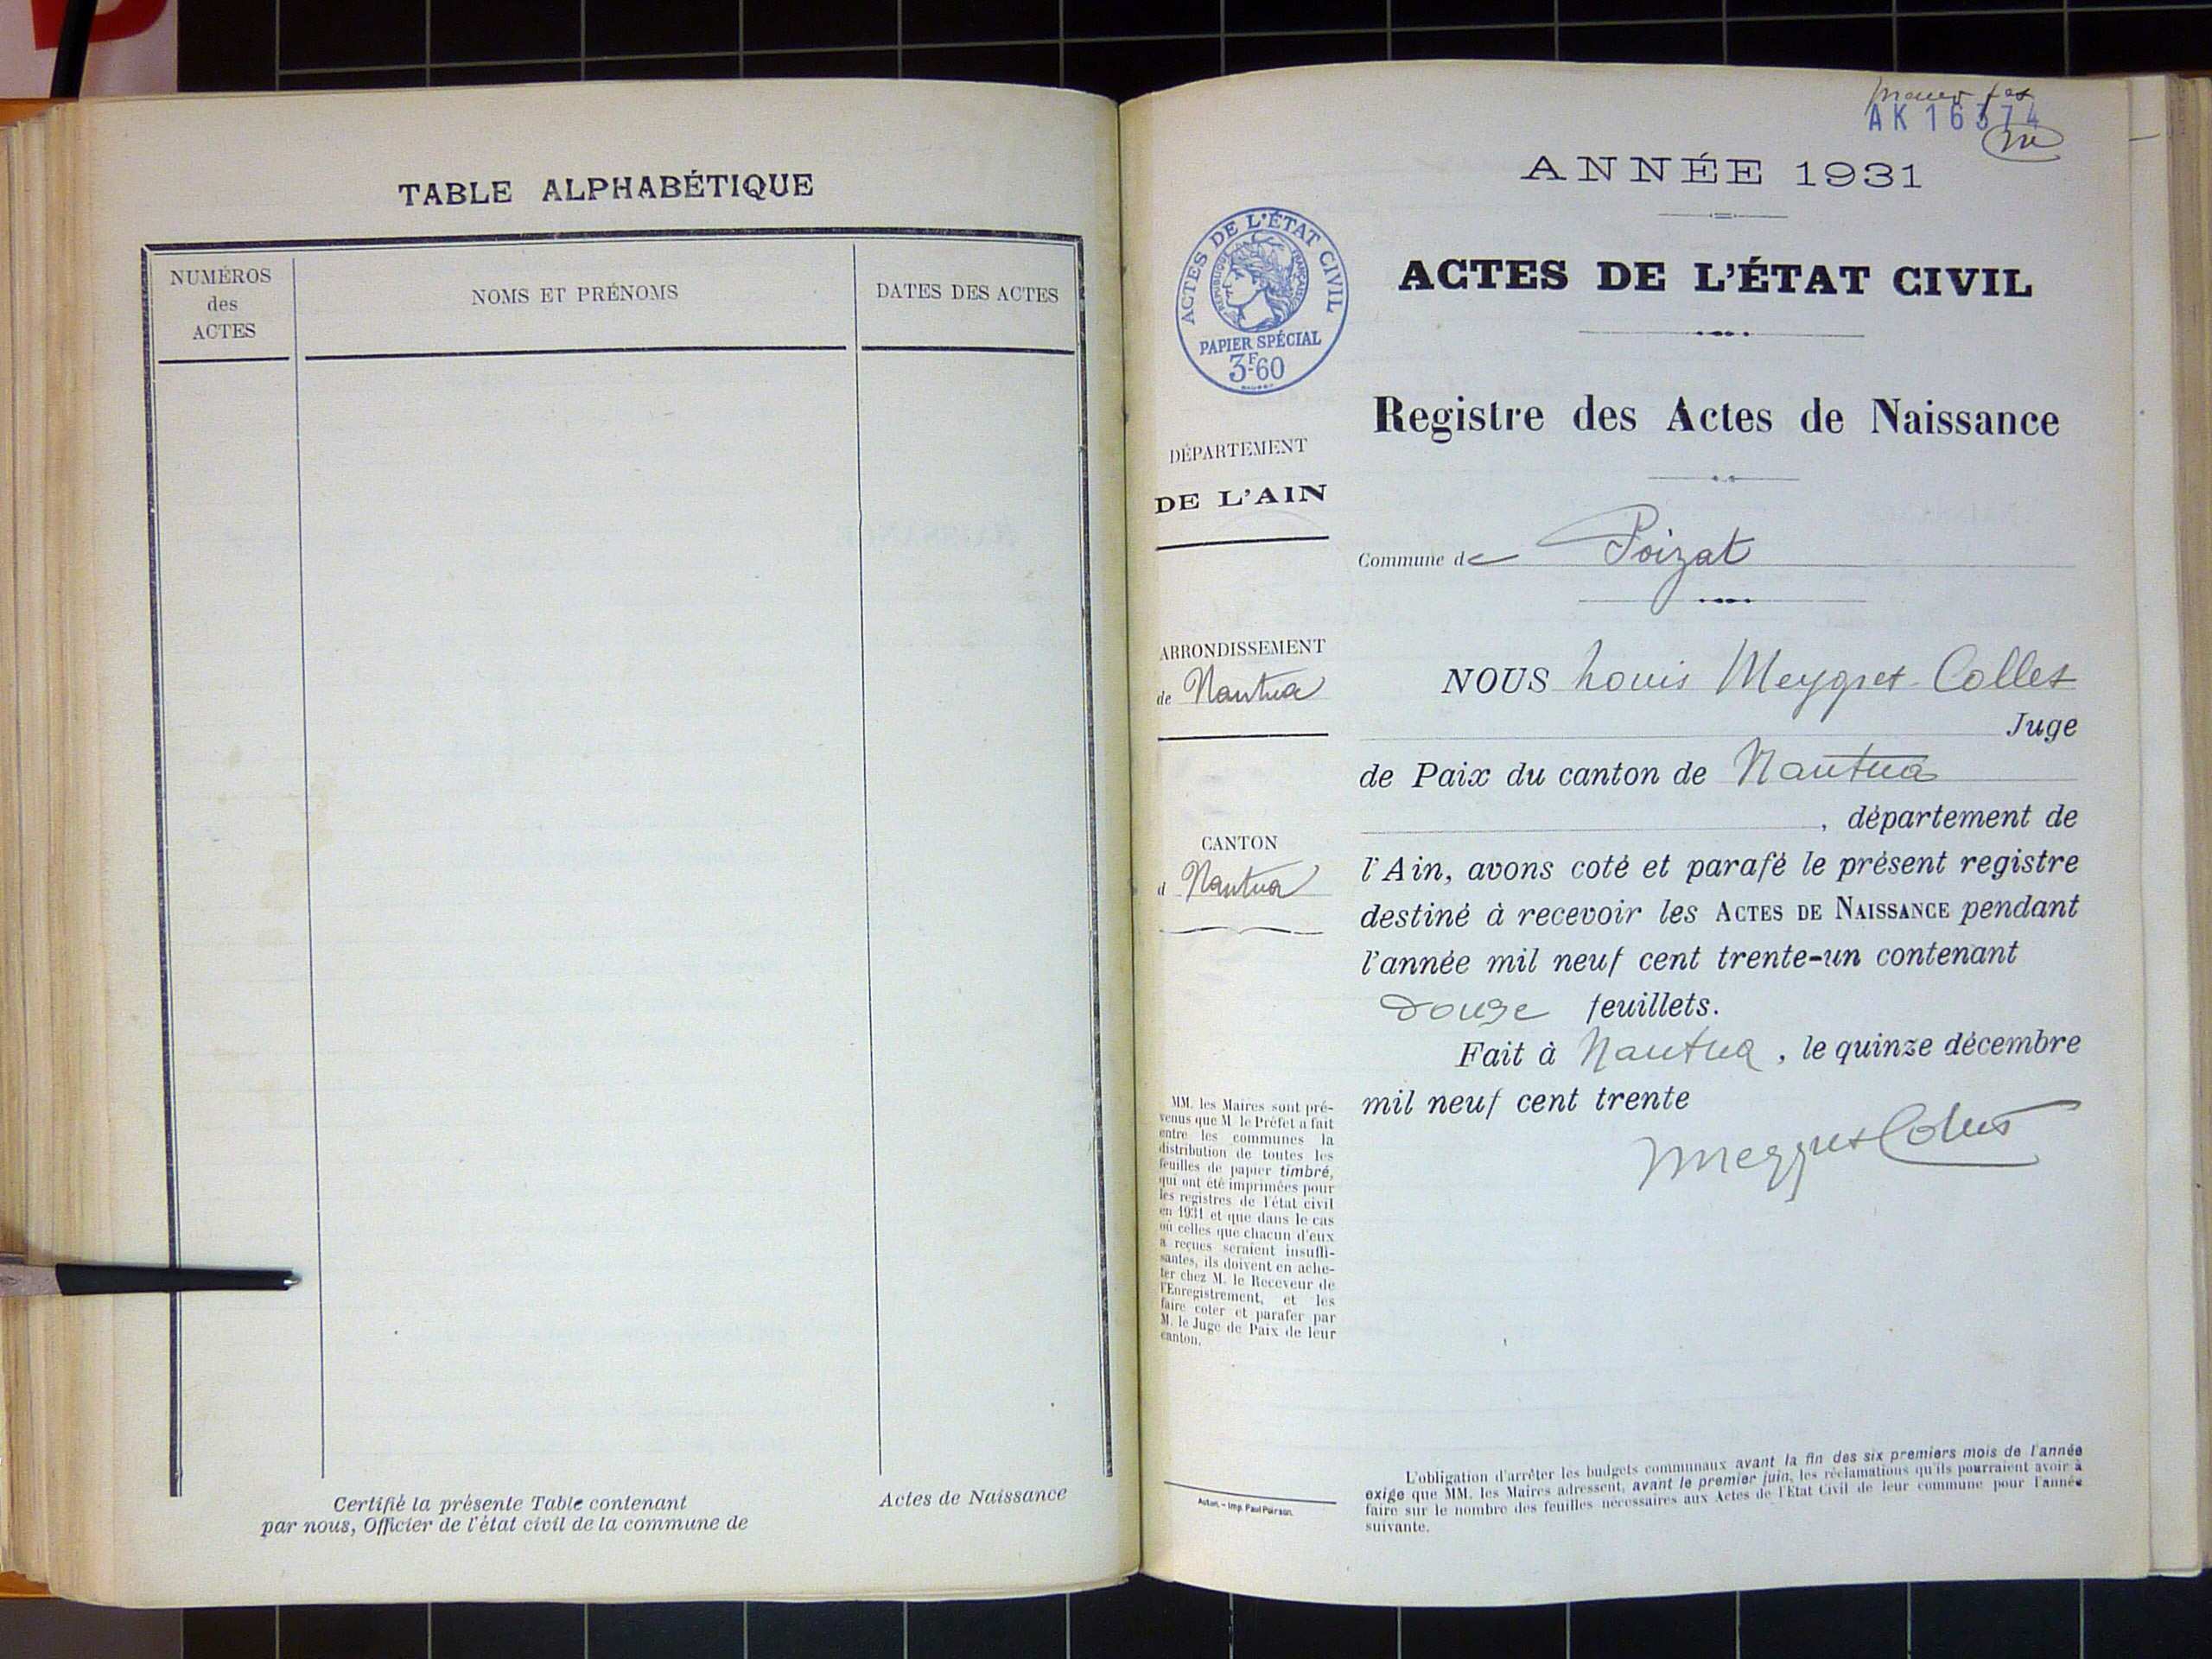 TABLE ALPHABÉTIQUE
NUMÉROS
des
ACTES
NOMS ET PRÉNOMS
DATES DES ACTES
Certifié la présente Table contenant
Actes de Naissance
par nous, Officier de l'état civil de la commune de
AK 16374
ANNÉE 1931
ACTES DE L'ÉTAT CIVIL
RÉPUBLIQUE FRANÇAISE
PAPIER SPÉCIAL
3F60
ACTES DE L'ÉTAT CIVIL
Registre des Actes de Naissance
DÉPARTEMENT
DE L'AIN
Commune de Poizat
ARRONDISSEMENT
de Nantua
CANTON
d Nantua
NOUS Louis Meygret-Collet
Juge
de Paix du canton de Nantua
, département de
l'Ain, avons coté et parafé le présent registre
destiné à recevoir les ACTES DE NAISSANCE pendant
l'année mil neuf cent trente-un contenant
douze feuillets.
Fait à Nantua, le quinze décembre
mil neuf cent trente
MM. les Maires sont pré-
venus que M. le Préfet a fait
entre les communes la
distribution de toutes les
feuilles de papier timbré,
qui ont été imprimées pour
les registres de l'état civil
en 1931 et que dans le cas
où celles que chacun d'eux
a reçues seraient insuffi-
santes, ils doivent en ache-
ter chez M. le Receveur de
l'Enregistrement, et les
faire coter et parafer par
M. le Juge de Paix de leur
canton.
L'obligation d'arrêter les budgets communaux avant la fin des six premiers mois de l'année
exige que MM. les Maires adressent, avant le premier juin, les réclamations qu'ils pourraient avoir à
faire sur le nombre des feuilles nécessaires aux Actes de l'État Civil de leur commune pour l'année
suivante.